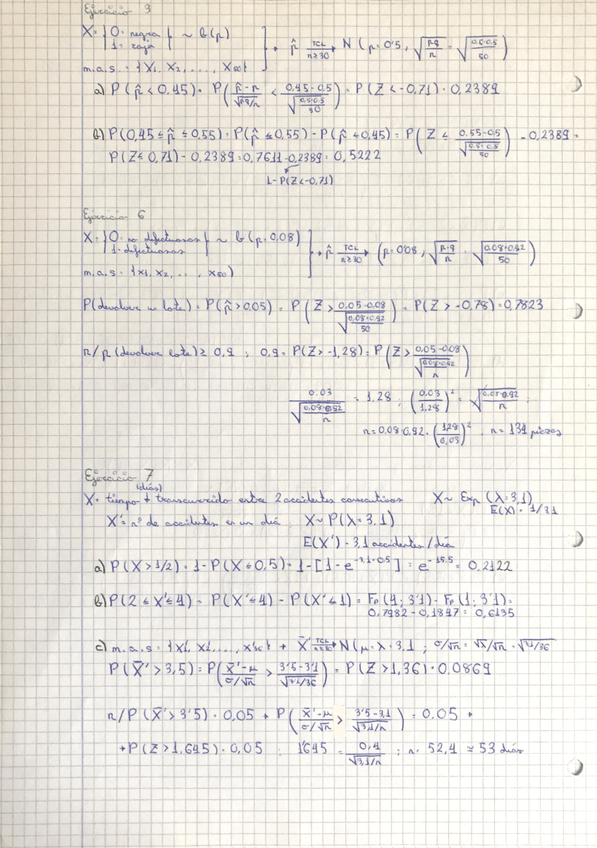 Ejercicio 3
X = { 0 = negra 1 = roja } ~ b(p)
m.a.s. = {X1, X2, ..., X50} + p̂ TCL n≥30 → N (μ = 0'5, √(p·q/n) = √(0.5·0.5/50))
a) P(p̂ < 0,45) = P((p̂ - p)/√(pq/n) < (0.45-0.5)/√(0.5·0.5/50)) = P(Z < -0,71) = 0,2389
b) P(0,45 ≤ p̂ ≤ 0,55) = P(p̂ ≤ 0,55) - P(p̂ < 0,45) = P(Z ≤ (0.55-0.5)/√(0.5·0.5/50)) - 0,2389 =
P(Z ≤ 0,71) - 0,2389 = 0,7611 - 0,2389 = 0,5222
1 - P(Z < -0,71)
Ejercicio 6
X = { 0 = no defectuosas 1 = defectuosas } ~ b(p=0,08)
m.a.s. = {X1, X2, ..., X50} → p̂ TCL n≥30 → (μ = 0'08, √(p·q/n) = √(0.08·0.92/50))
P(devolver un lote) = P(p̂ > 0.05) = P(Z > (0.05-0.08)/√(0.08·0.92/50)) = P(Z > -0,78) = 0,7823
n / p(devolver lote) ≥ 0,9 ; 0,9 = P(Z > -1,28) = P(Z > (0.05-0.08)/√(0.08·0.92/n))
0.03/√(0.08·0.92/n) = 1,28 ; (0.03/1,28)² = √(0.08·0.92/n) ;
n = 0.08·0.92·(1,28/0,03)² ; n = 134 piezas
Ejercicio 7
(días)
X = tiempo transcurrido entre 2 accidentes consecutivos X ~ Exp (λ=3,1)
E(X) = 1/3.1
X' = nº de accidentes en un día ; X ~ P(λ = 3,1)
E(X') = 3,1 accidentes/día
a) P(X > 1/2) = 1 - P(X ≤ 0,5) = 1 - [1 - e^-3,1·0.5] = e^-15.5 = 0,2122
b) P(2 ≤ X' ≤ 4) = P(X' ≤ 4) - P(X' ≤ 1) = Fp(4; 3'1) - Fp(1; 3'1) =
0,7982 - 0,1847 = 0,6135
c) m.a.s = {X'1, X'2, ..., X'36} + X̄' TCL n≥30 → N(μ = λ = 3.1 ; σ/√n = √λ/√n = √3,1/36
P(X̄' > 3,5) = P((X̄'-μ)/(σ/√n) > (3'5-3'1)/√(3'1/36)) = P(Z > 1,36) = 0,0869
n / P(X̄' > 3'5) = 0.05 + P((X̄'-μ)/(σ/√n) > (3'5-3,1)/√(3,1/n)) = 0.05 +
+ P(Z > 1,645) = 0.05 ; 1'645 = 0,4/√(3,1/n) ; n = 52,4 ≈ 53 días